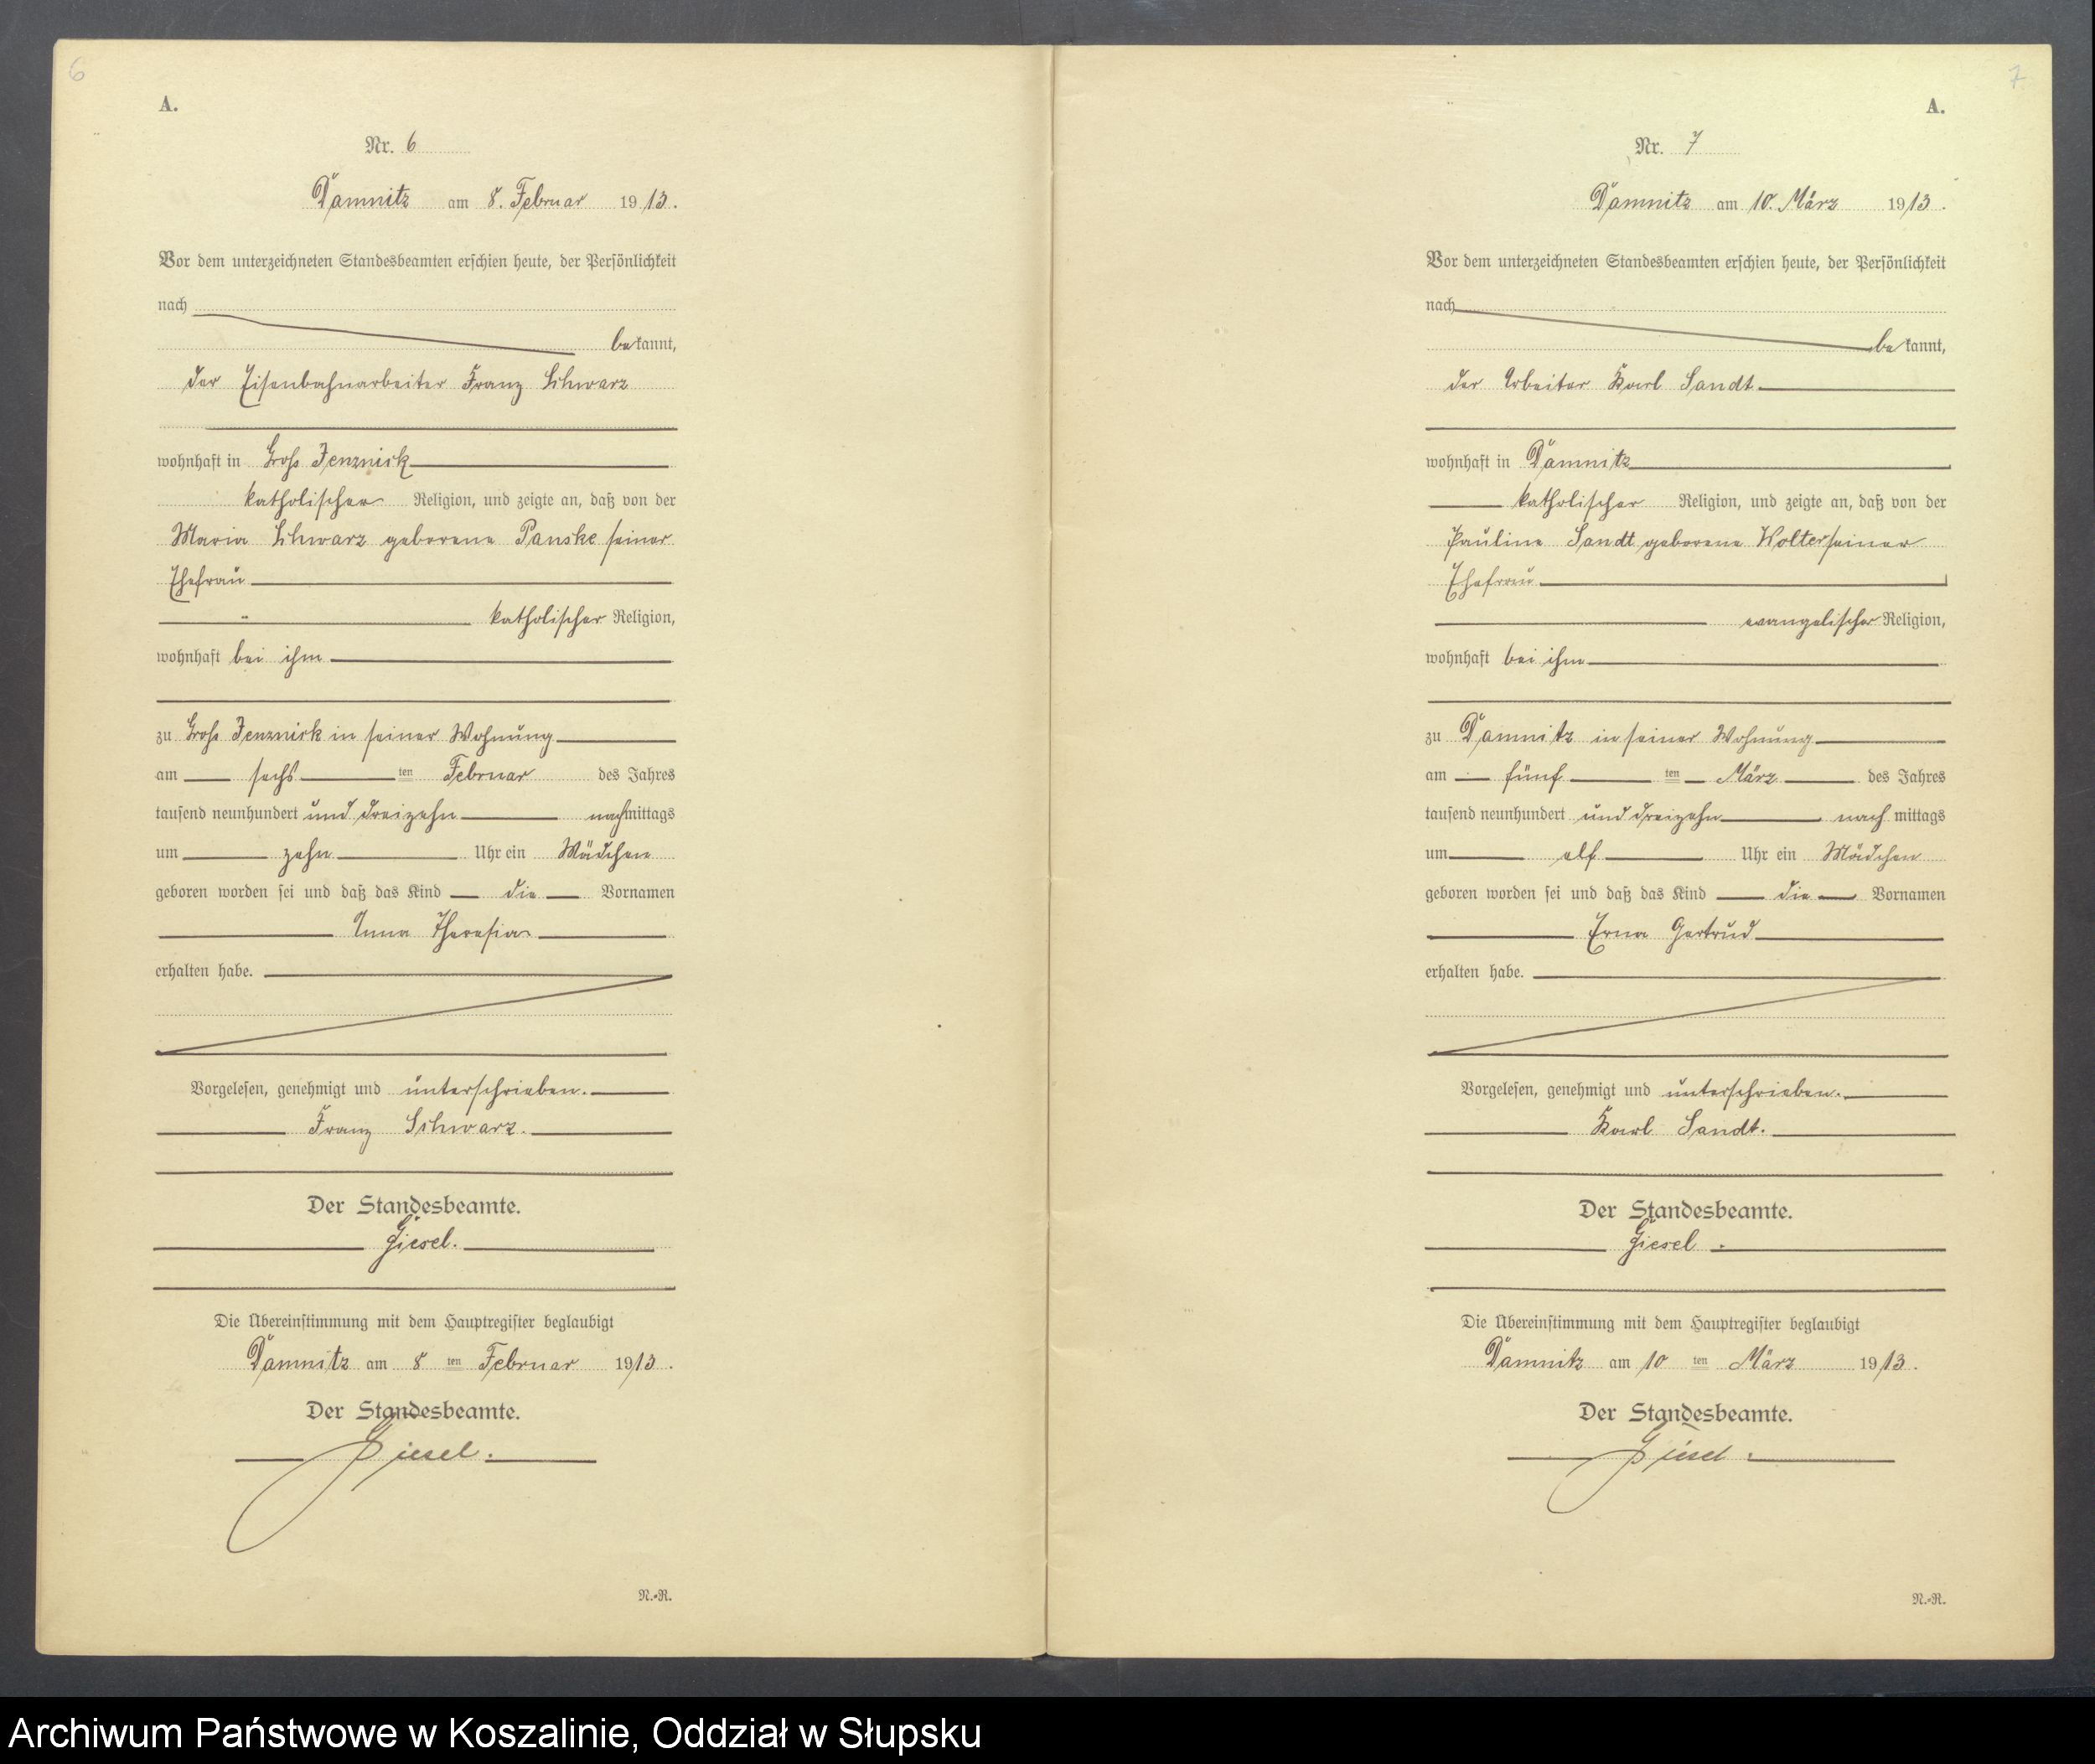 6
A.
Nr. 6
Damnitz am 8. Februar 1913.
Vor dem unterzeichneten Standesbeamten erschien heute, der Persönlichkeit
nach
bekannt,
der Eisenbahnarbeiter Franz Schwarz
wohnhaft in Groß Jenznick
katholischer Religion, und zeigte an, daß von der
Maria Schwarz geborene Panske seiner
Ehefrau
katholischer Religion,
wohnhaft bei ihm
zu Groß Jenznick in seiner Wohnung
am sechsten Februar des Jahres
tausend neunhundert und dreizehn nachmittags
um zehn Uhr ein Mädchen
geboren worden sei und daß das Kind die Vornamen
Anna Theresia
erhalten habe.
Vorgelesen, genehmigt und unterschrieben.
Franz Schwarz.
Der Standesbeamte.
Giesel.
Die Übereinstimmung mit dem Hauptregister beglaubigt
Damnitz am 8ten Februar 1913.
Der Standesbeamte.
Giesel.
N.-R.
7
A.
Nr. 7
Damnitz am 10. März 1913.
Vor dem unterzeichneten Standesbeamten erschien heute, der Persönlichkeit
nach
bekannt,
der Arbeiter Karl Sandt
wohnhaft in Damnitz
katholischer Religion, und zeigte an, daß von der
Pauline Sandt geborene Wolter seiner
Ehefrau
evangelischer Religion,
wohnhaft bei ihm
zu Damnitz in seiner Wohnung
am fünften März des Jahres
tausend neunhundert und dreizehn nachmittags
um elf Uhr ein Mädchen
geboren worden sei und daß das Kind die Vornamen
Erna Gertrud
erhalten habe.
Vorgelesen, genehmigt und unterschrieben.
Karl Sandt.
Der Standesbeamte.
Giesel.
Die Übereinstimmung mit dem Hauptregister beglaubigt
Damnitz am 10ten März 1913.
Der Standesbeamte.
Giesel.
N.-R.
Archiwum Państwowe w Koszalinie, Oddział w Słupsku